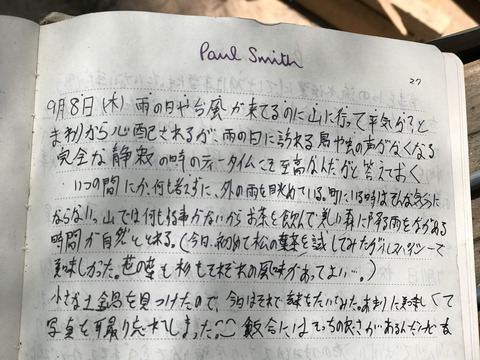 Paul Smith
27
9月8日(木) 雨の日や台風が来てるのに山に行って平気か?と
まわりから心配されるが、雨の日に訪れる鳥や虫の声がなくなる
完全な静寂の時のティータイムこそ至高なんだがと答えておく
いつの間にか、何も考えずに、外の雨を眺めている。町にいる時はそんな気分に
ならない。山では何も用事がないからお茶を飲んで美しい森に降る雨をながめる
時間が自然ととれる。(今日、初めて私の
を試してみたが
美味しかった。
もそれぞれの風味があってよい…。)
小さな土鍋を見つけたので、今日はそれで
をたいてみた。あまりに美味しくて
写真を撮り忘れてしまった。 飯盒にはそっちの良さがあるんだけど